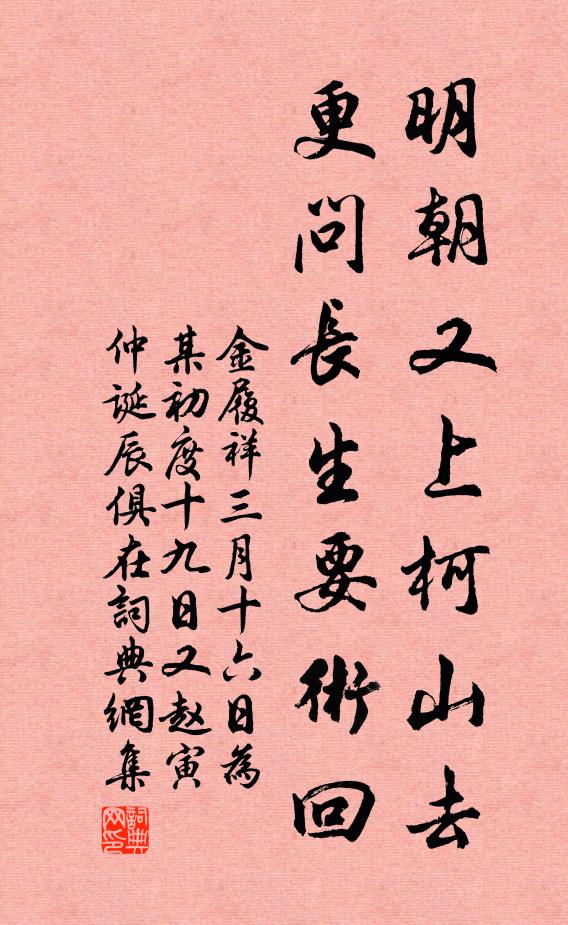 明朝又上柯山去
更問長生要術回
金履祥三月十六日為
某初度十九日又赵寅
仲誕辰俱在詞典網集
詞典
网印